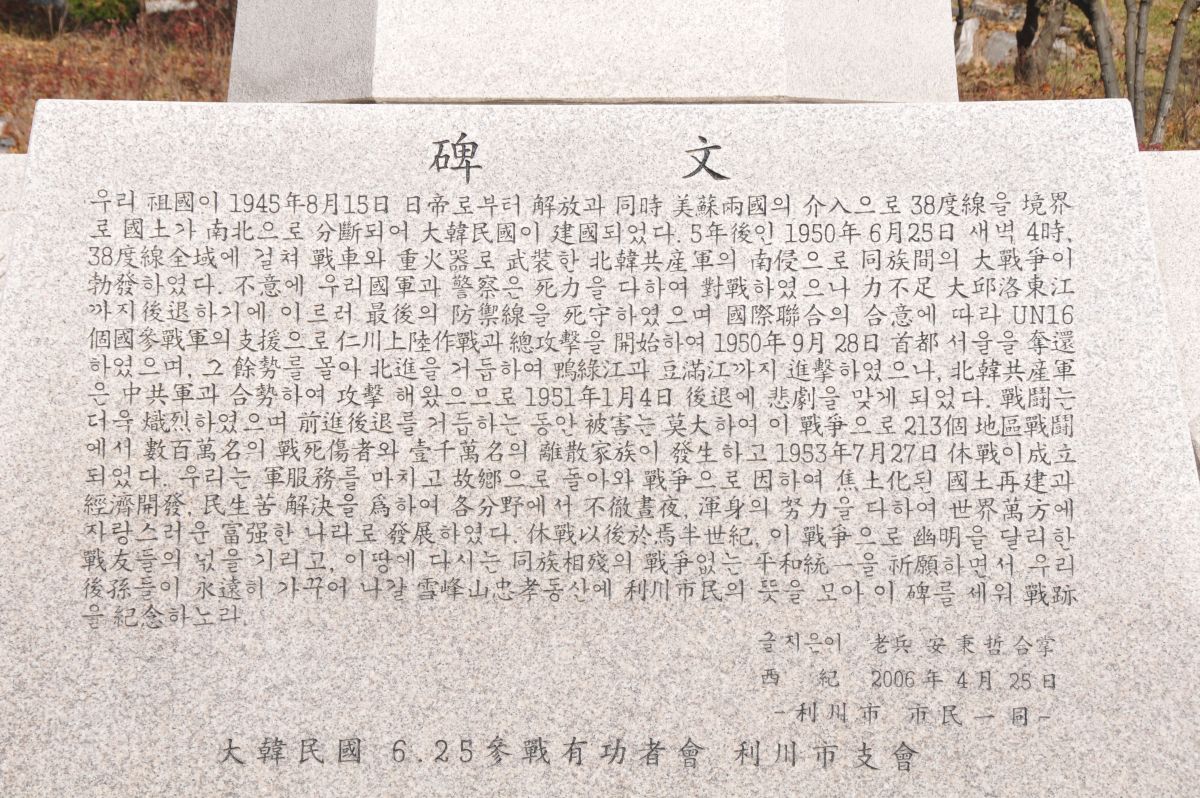 碑 文
우리 祖國이 1945年8月15日 日帝로부터 解放과 同時 美蘇兩國의 介入으로 38度線을 境界
로 國土가 南北으로 分斷되어 大韓民國이 建國되었다. 5年後인 1950年 6月25日 새벽 4時,
38度線全域에 걸쳐 戰車와 重火器로 武裝한 北韓共産軍의 南侵으로 同族間의 大戰爭이
勃發하였다. 不意에 우리國軍과 警察은 死力을 다하여 對戰하였으나 力不足 大邱洛東江
까지後退하기에 이르러 最後의 防禦線을 死守하였으며 國際聯合의 合意에 따라 UN16
個國參戰軍의支援으로仁川上陸作戰과 總攻擊을 開始하여 1950年 9月 28日 首都 서울을 奪還
하였으며, 그 餘勢를 몰아 北進을 거듭하여 鴨綠江과 豆滿江까지 進擊하였으나, 北韓共産軍
은 中共軍과 合勢하여 攻擊 해왔으므로 1951年1月4日 後退에 悲劇을 맞게 되었다. 戰鬪는
더욱 熾烈하였으며 前進後退를 거듭하는 동안 被害는 莫大하여 이 戰爭으로 213個 地區戰鬪
에서 數百萬名의 戰死傷者와 壹千萬名의 離散家族이 發生하고 1953年7月27日 休戰이成立
되었다. 우리는 軍服務를 마치고 故鄕으로 돌아와 戰爭으로 因하여 焦土化된 國土再建과
經濟開發, 民生苦 解決을 爲하여 各分野에서 不徹晝夜, 渾身의 努力을 다하여 世界萬方에
자랑스러운 富强한 나라로 發展하였다. 休戰以後於焉半世紀, 이 戰爭으로 幽明을 달리한
戰友들의 넋을 기리고, 이땅에 다시는 同族相殘의 戰爭없는 平和統一을 祈願하면서 우리
後孫들이 永遠히 가꾸어 나갈 雪峰山忠孝동산에 利川市民의 뜻을 모아 이 碑를 세워 戰跡
을 紀念하노라.
글지은이 老兵 安秉哲合掌
西 紀 2006年 4月 25日
-利川市 市民一同-
大韓民國 6.25參戰有功者會 利川市支會